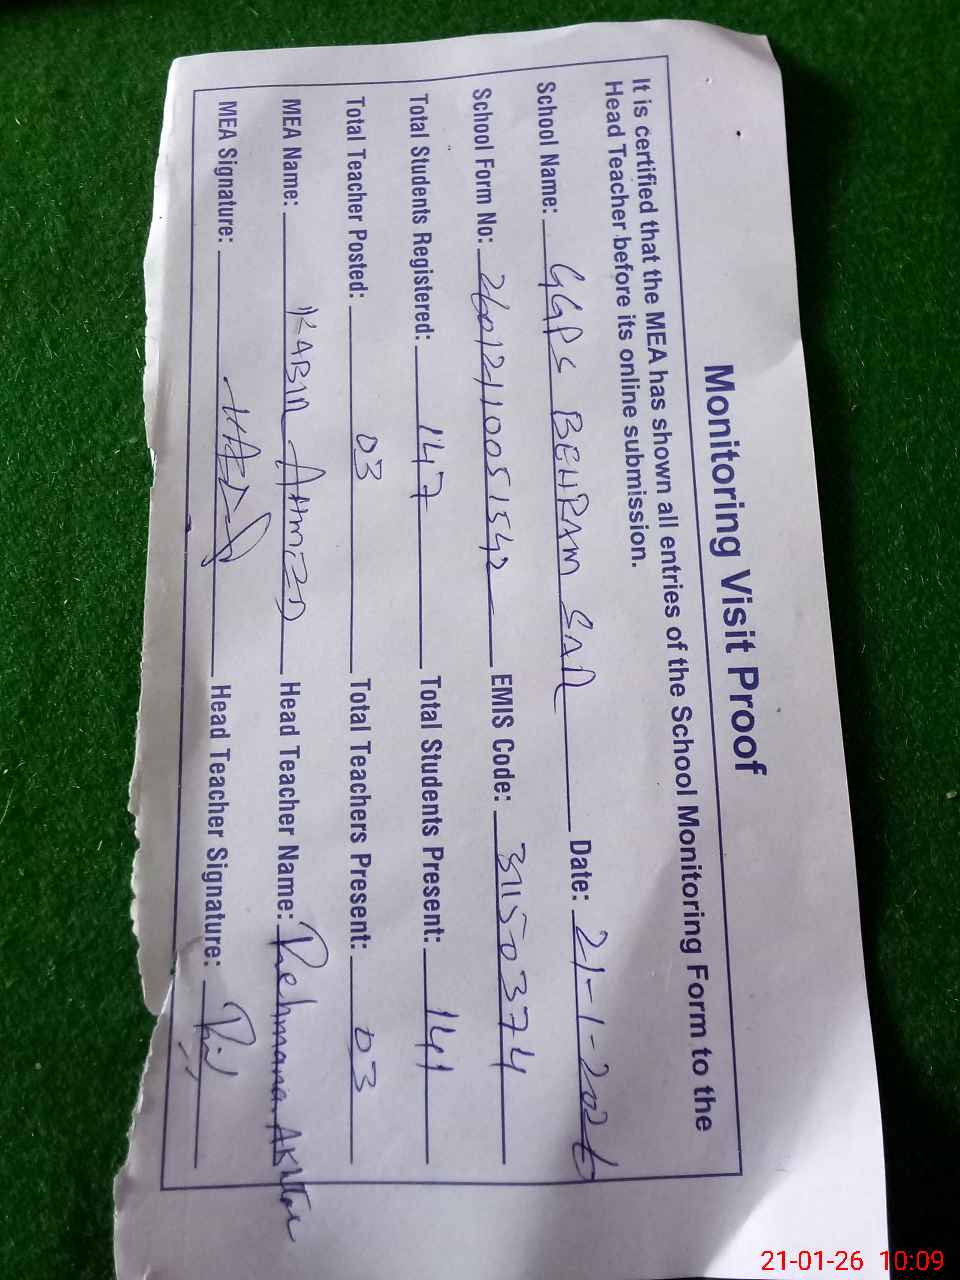 Monitoring Visit Proof
It is certified that the MEA has shown all entries of the School Monitoring Form to the
Head Teacher before its online submission.
School Name: GGPS BEHRAM SAR Date: 21-1-2026
School Form No: 26012110051542 EMIS Code: 31150374
Total Students Registered: 147 Total Students Present: 141
Total Teacher Posted: 03 Total Teachers Present: 03
MEA Name: KABIR AHMED Head Teacher Name: Rehmana Akhtar
MEA Signature: Head Teacher Signature:
21-01-26 10:09